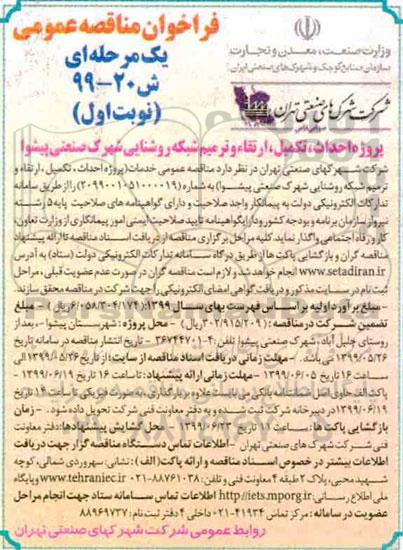 فراخوان مناقصه عمومی
یک مرحله ای
ش ۲۰-۹۹
(نوبت اول)
وزارت صنعت، معدن و تجارت
سازمان صنایع کوچک و شهرک های صنعتی ایران
شرکت شهرک های صنعتی تهران
پروژه احداث، تکمیل، ارتقاء و ترمیم شبکه روشنایی شهرک صنعتی پیشوا
شرکت شهرکهای صنعتی تهران در نظر دارد مناقصه عمومی خدمات (پروژه احداث، تکمیل، ارتقاء و
ترمیم شبکه روشنایی شهرک صنعتی پیشوا) به شماره (۲۰۹۹۰۰۱۰۵۱۰۰۰۰۱۹) را از طریق سامانه
تدارکات الکترونیکی دولت به پیمانکار واجد صلاحیت و دارای گواهینامه های صلاحیت پایه ۵ رشته
نیرو از سازمان برنامه و بودجه کشور و دارا گواهینامه تایید صلاحیت ایمنی امور پیمانکاری از وزارت تعاون،
کار و رفاه اجتماعی واگذار نماید. کلیه مراحل برگزاری مناقصه از دریافت اسناد مناقصه تا ارائه پیشنهاد
مناقصه گران و بازگشایی پاکت ها از طریق درگاه سامانه تدارکات الکترونیکی دولت (ستاد) به آدرس
www.setadiran.ir انجام خواهد شد و لازم است مناقصه گران در صورت عدم عضویت قبلی، مراحل
ثبت نام در سایت مذکور و دریافت گواهی امضای الکترونیکی را جهت شرکت در مناقصه محقق سازند.
-مبلغ برآورد اولیه بر اساس فهرست بهای سال ۱۳۹۹: (۶/۰۵۸/۳۰۴/۱۷۴ ریال) - مبلغ
تضمین شرکت در مناقصه: (۳۰۲/۹۱۵/۲۰۹ ریال) - محل پروژه: شهرستان پیشوا - بعد از
روستای جلیل آباد، شهرک صنعتی پیشوا تلفن: ۳۶۷۴۴۷۰۱ - تاریخ انتشار مناقصه در سامانه تاریخ
۱۳۹۹/۰۵/۲۶ می باشد. - مهلت زمانی دریافت اسناد مناقصه از سایت: از تاریخ ۱۳۹۹/۰۵/۲۶ الی
ساعت ۱۶ تاریخ ۱۳۹۹/۰۶/۰۵ - مهلت زمانی ارائه پیشنهاد: تا ساعت ۱۶ تاریخ ۱۳۹۹/۰۶/۱۹
۱۳۹۹/۰۶/۱۹ در دبیرخانه شرکت ثبت شده و به دفتر معاونت فنی شرکت تحویل داده شود. - زمان
بازگشایی پاکت ها: ساعت تاریخ ۱۳۹۹/۰۶/۲۲ - محل گشایش پیشنهادها: دفتر معاونت
فنی شرکت شهرک های صنعتی تهران - اطلاعات تماس دستگاه مناقصه گزار جهت دریافت
اطلاعات بیشتر در خصوص اسناد مناقصه و ارائه پاکت (الف): نشانی: سهروردی شمالی، کوچه
شهید محبی، پلاک ۲ طبقه ۴ معاونت فنی و تلفن: ۸۸۷۶۱۰۳۸-۰۲۱ www.tehraniec.ir و پایگاه
ملی اطلاع رسانی: http://iets.mporg.ir اطلاعات تماس سامانه ستاد جهت انجام مراحل
عضویت در سامانه: مرکز تماس ۴۱۹۳۴-۰۲۱ دفتر ثبت نام: ۸۸۹۶۹۷۳۷
روابط عمومی شرکت شهرکهای صنعتی تهران